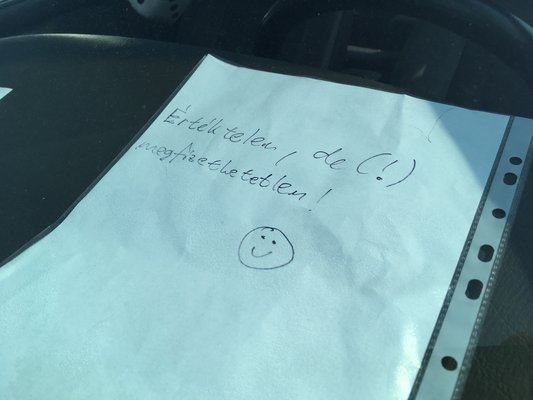 Értéktelen, de (!)
megfizethetetlen!